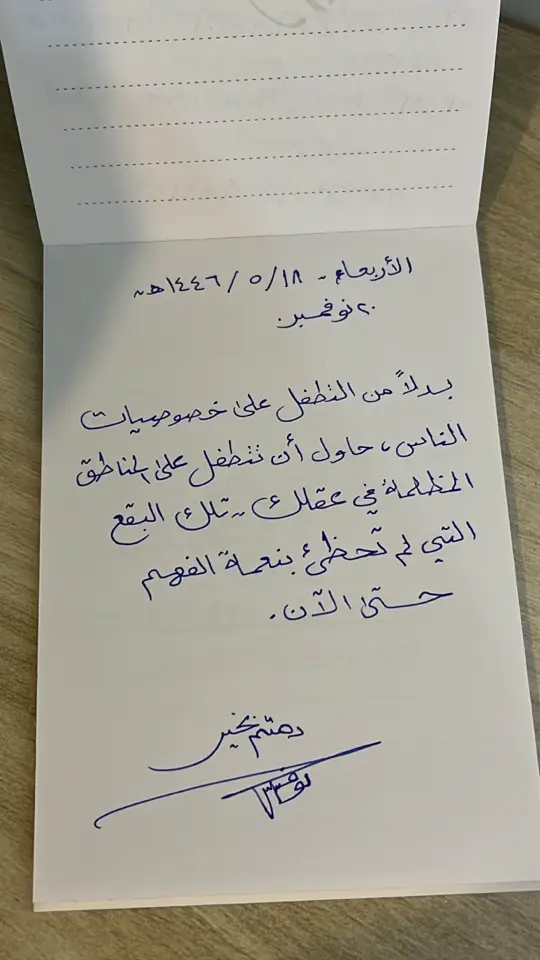 الأربعاء - ١٤٤٦/٥/١٨هـ
٢٠ نوفمبر
بدلاً من التطفل على خصوصيات
الناس، حاول أن تتطفل على المناطق
المظلمة في عقلك .. تلك البقع
التي لم تحظىٰ بنعمة الفهم
حتى الآن.
دمتم بخير